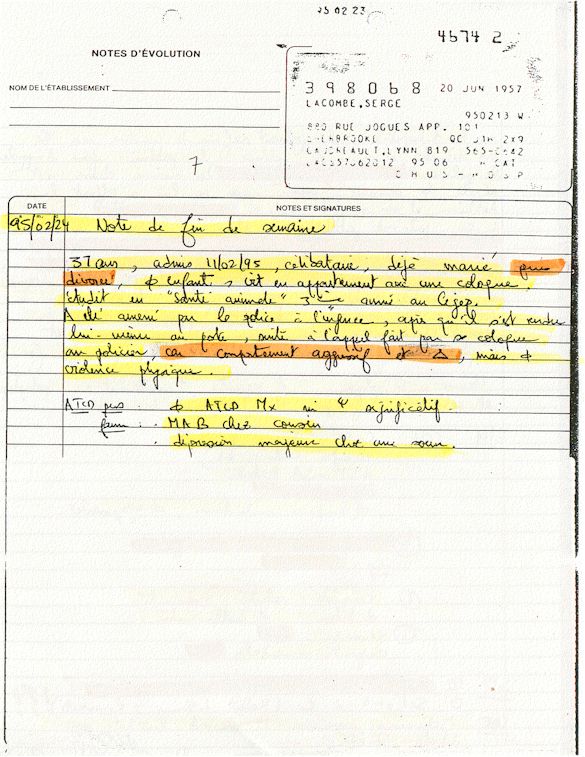 95 02 23
4674 2
NOTES D'ÉVOLUTION
NOM DE L'ÉTABLISSEMENT
398068 20 JUN 1957
LACOMBE,SERGE
950213 W
880 RUE JOGUES APP. 101
SHERBROOKE QC J1H 2X9
LYNN 819
95 06 CAT
C H U S - H O S P
7
DATE NOTES ET SIGNATURES
95/02/24 Note de fin de semaine
37 ans, admis 11/02/95, célibataire, déjà marié puis
divorcé, ϕ enfants, vit en appartement avec une cologue.
Étudit en "Santé animale" 3e année au Cégep.
A été amené par le police à l'urgence, après qu'il s'est rendu
lui-même au poste, suite à l'appel fait par sa cologue
au policier, car comportement aggressif et Δ, mais ϕ
violence physique.
ATCD pers : ϕ ATCD Mx ni Ψ significatif.
fam : MAB chez cousin
dépression majeure chez une soeur.